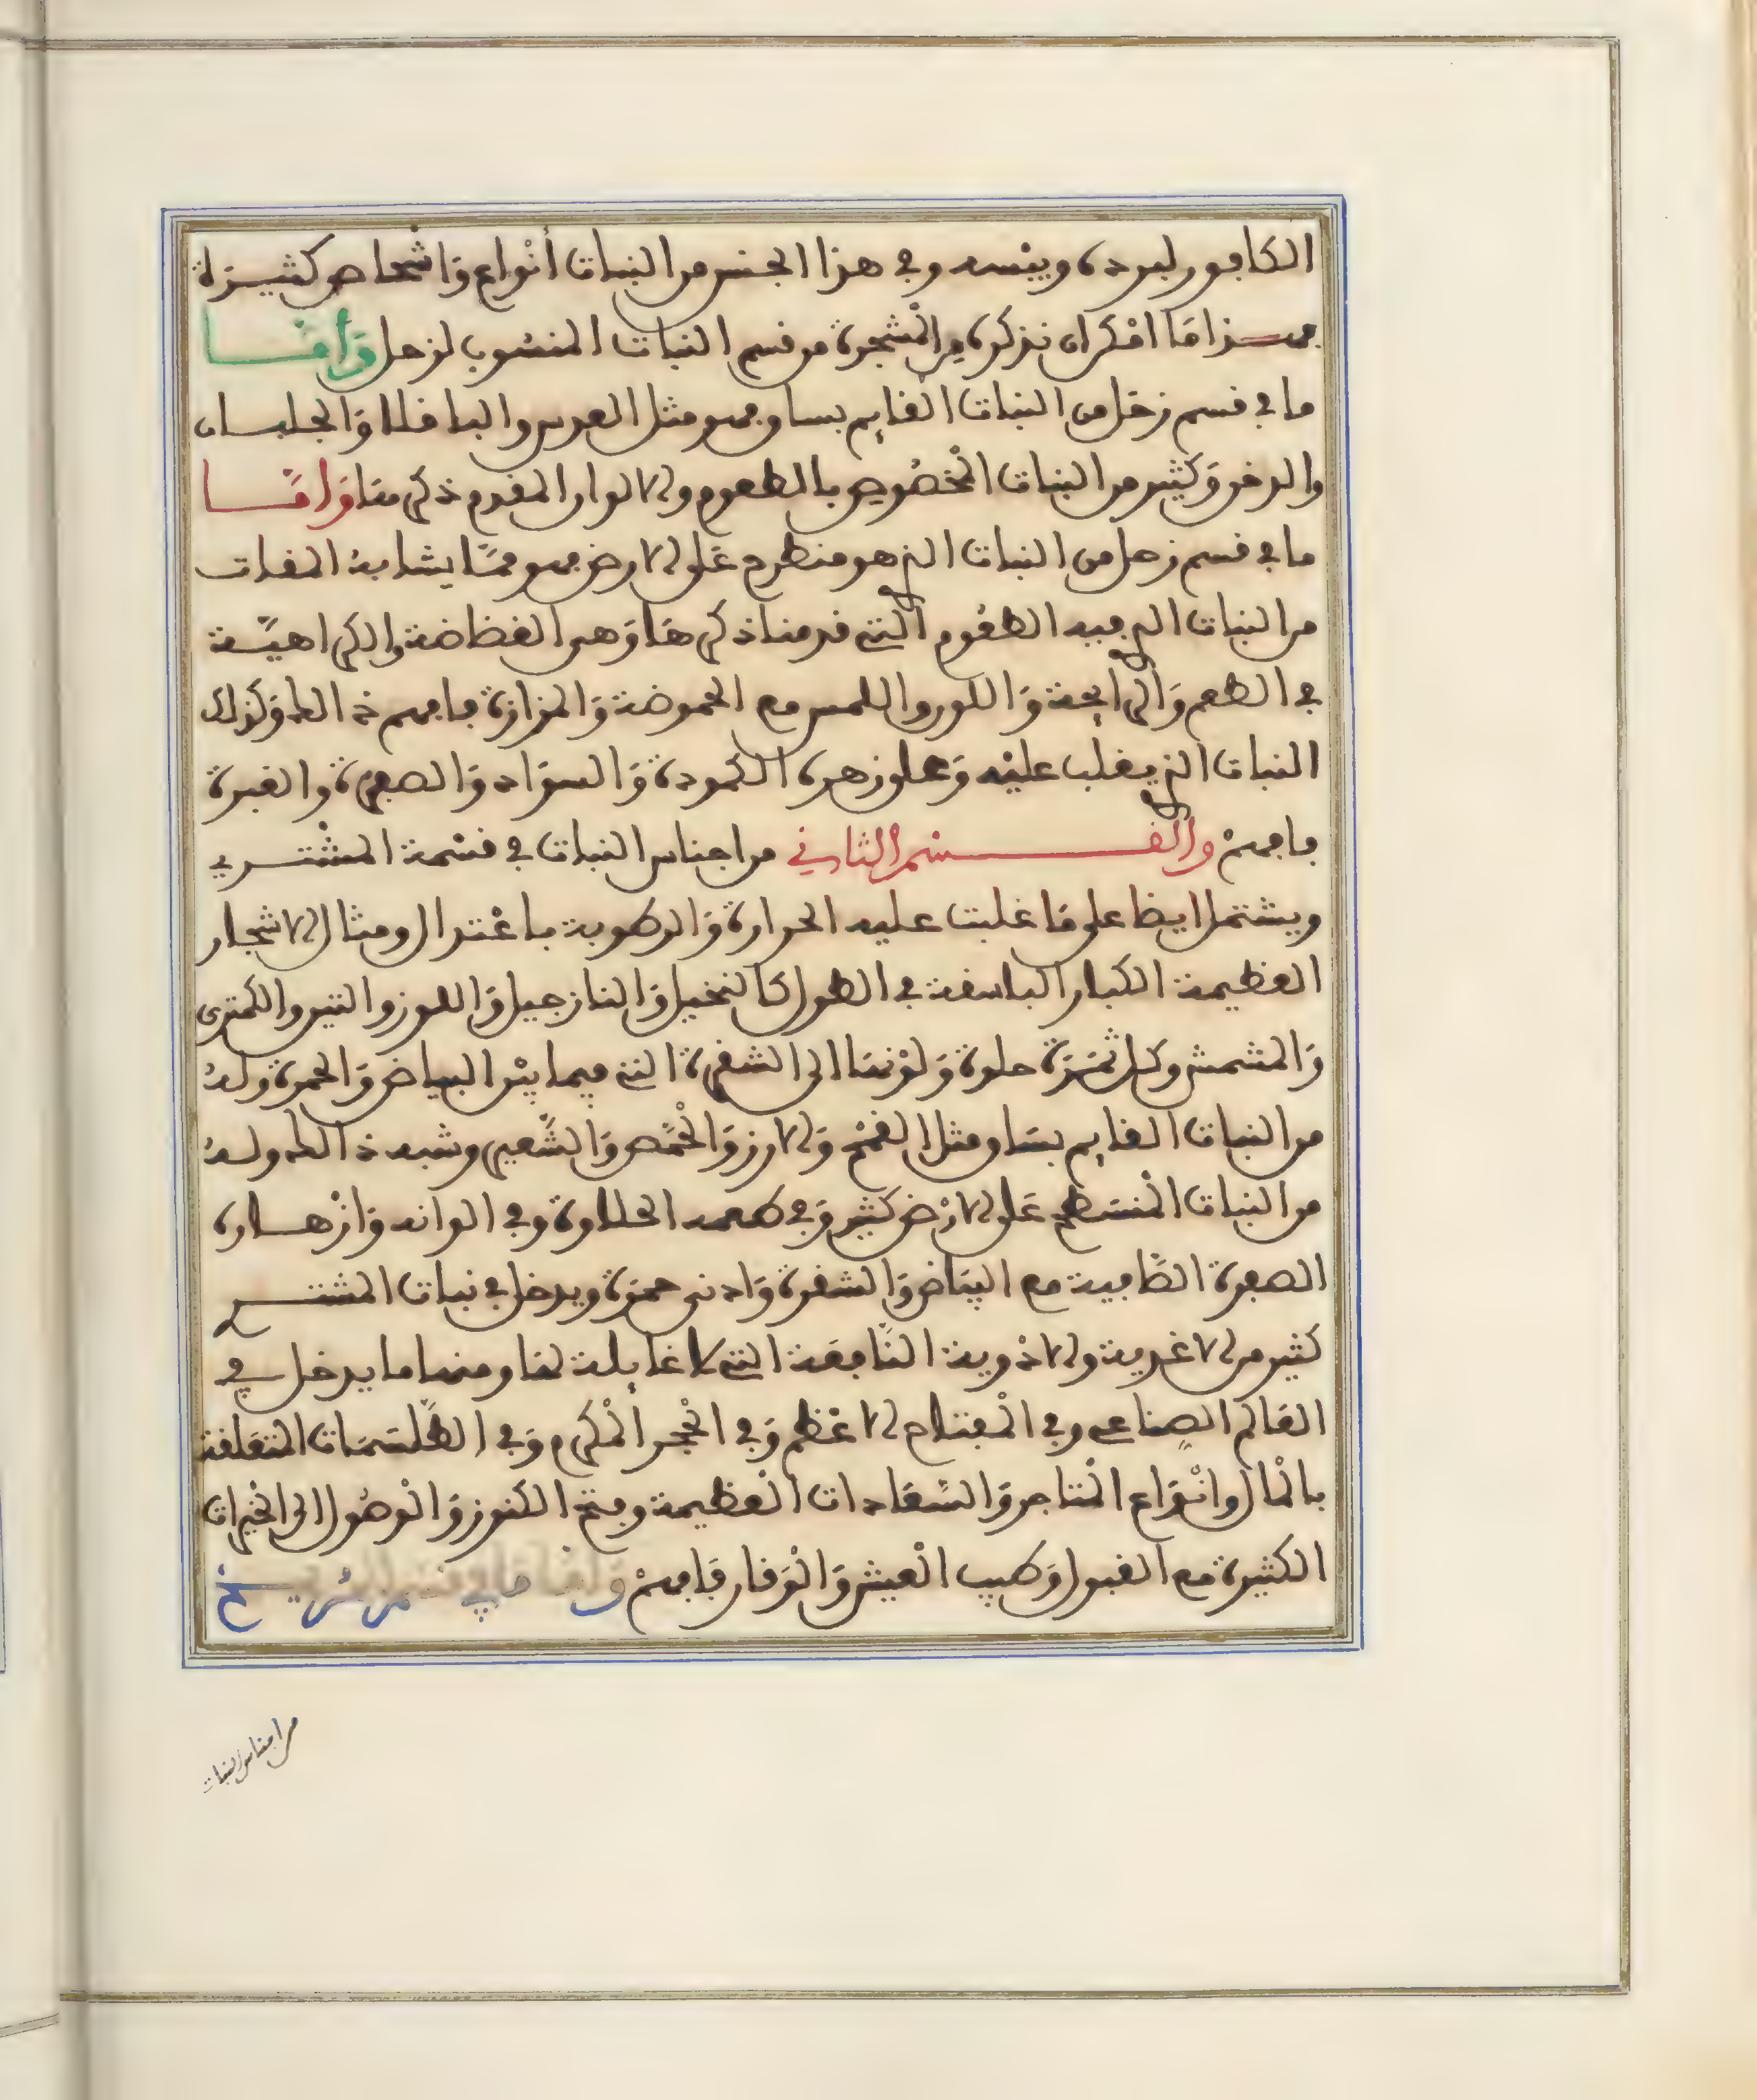 الكافور لبرده ويبسه وفي هذا الجنس من النبات أنواع وَاشخاص كثيرَة
فهذا مَا امْكن ان نذكره مِن الْمشجرة من قسم النبات المنسُوب لزحل وَأمَّا
ما في قسم زحَل من النبات القايم بساق فهو مثل العدس والباقلا وَالجلبان
والدخن وَكثير من النبات الْمخصُوص بالطعوم والالوان المقدم ذكرها وَامَّا
ما في قسم زحل من النبات الذي هو منطرح عَلى الارض فهو ممَّا يشابهُ المقات
من النبات الذي فيه الطعُوم التي قدمنا ذكرهَا وَهي الفظاظة والكراهيَّة
في الطعم وَالرايحة وَاللون واللمس مع الحموضة وَالمزازة فافهم ذالك وَكذلك
النبات الذي يغلب عليْه وَعلى زهره الكمودة وَالسوَاد وَالصفرة والغبرة
فافهمْ والقسْم الثاني من اجناس النبات في قسْمة المشْتري
ويشتمل ايضا على مَا غلبت عليه الحرارة وَالرطوبة باعْتدال ومثال الاشجار
العظيمة الكبار الباسقة في الطول كالنخيل وَالنارجيل وَاللوز والتين والكمثرى
وَالمشمش وكل ثمَرَة حلوة وَلوْنها الى الشقرة التي فيما بيْن البياض وَالحمرة ولهُ
من النبات القايم بسَاق مثل القمْح وَالارز وَالحْمّص وَالشَّعير وشبه ذالك ولهُ
من النبات الْمنسَطح عَلى الارْض كثير وَفي طعمه الحلاوة وفي الوانه وَازْهاره
الصفرة الصَّافية مع البيَاض وَالشقرة وَادنى حمرَة ويدخل في نبات المشتري
كثير من الاغدية والادْوية النَّافعَة التي لا غايلة لها ومنها ما يدخل في
العَالم الصِّناعي وفي الْمفتاح الاعْظم وَفي الْحجر الْمكرم وَفي الطِّلسَمَات المتعَلقة
بالْمال وانْوَاع الْمتاجر وَالسَّعَادات الْعظيمة وفتح الكنوز وَالْوصُول الى الْخيرات
الكثيرة مع القبول وَطيب الْعيش وَالْوَقار فَافهمْ وَامَّا مَا في قسم المريخ
من اجناس النبات